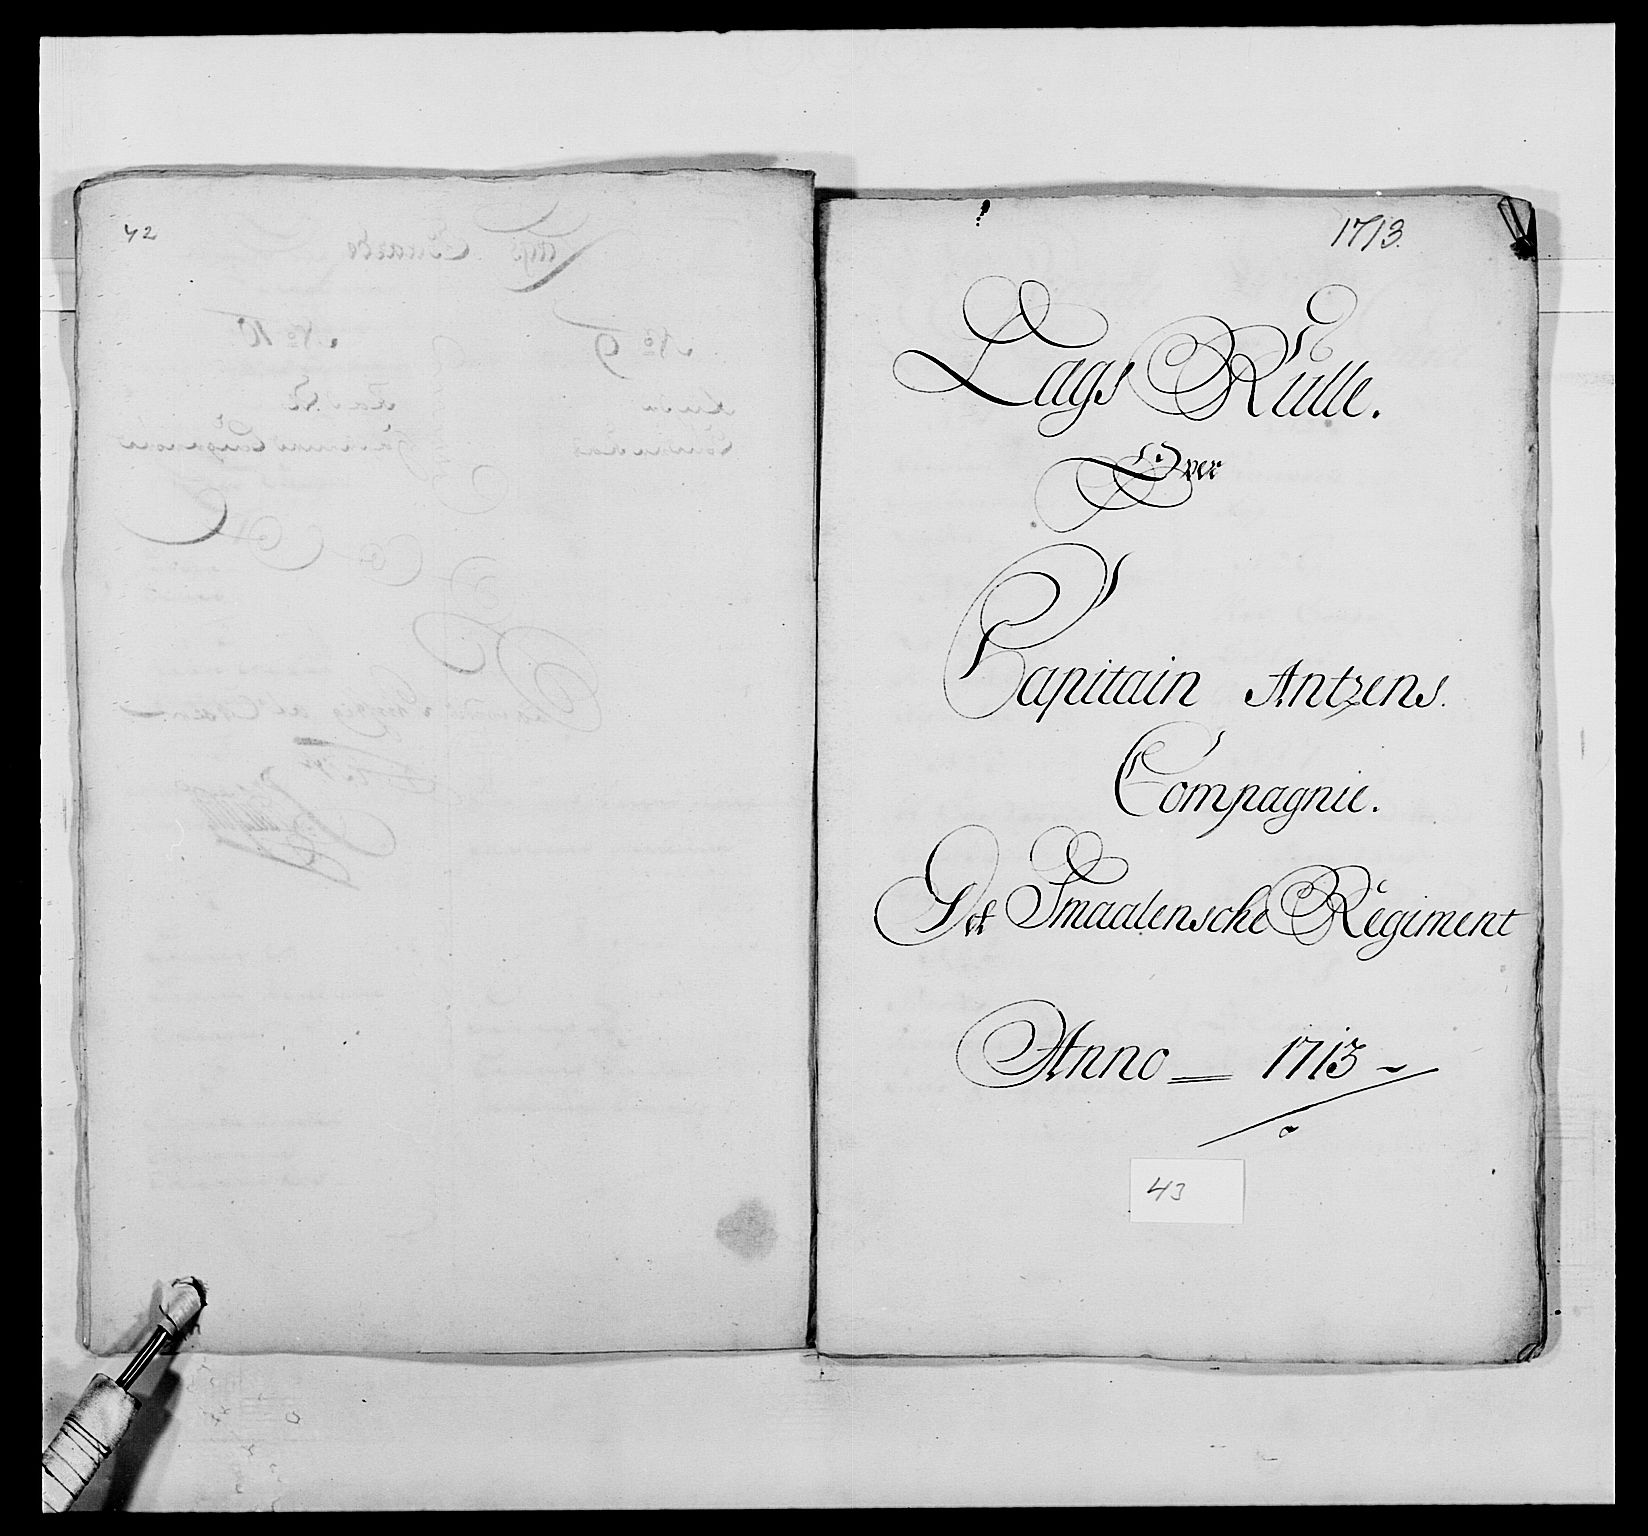 42
1713.
Lags Rulle.
Over
Capitain Antzens.
Compagnie.
Det Smaalensche Regiment
Anno 1713
43